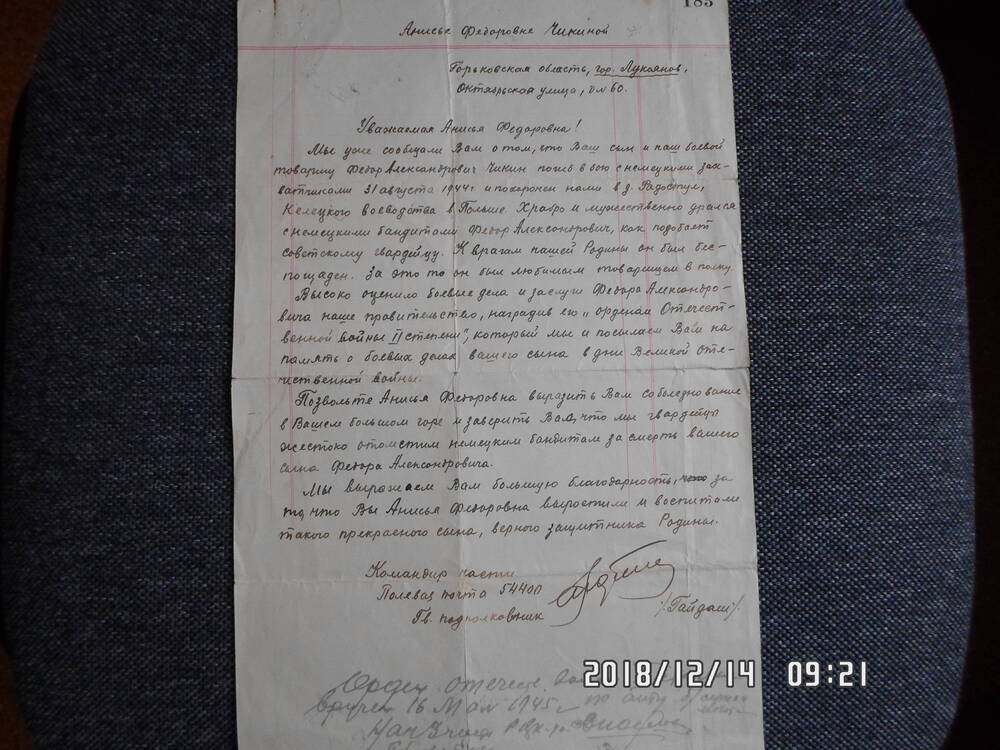 185
Анисье Федоровне Чикиной
Горьковская область, гор. Лукоянов,
Октябрьская улица, д № 60.
Уважаемая Анисья Федоровна!
Мы уже сообщали Вам о том, что Ваш сын и наш боевой
товарищ Федор Александрович Чикин погиб в бою с немецкими зах-
ватчиками 31 августа 1944 г и похоронен нами в д. Радостул,
Келецкого воеводства в Польше. Храбро и мужественно дрался
с немецкими бандитами Федор Александрович, как подобает
советскому гвардейцу. К врагам нашей Родины он был бес-
пощаден. За это то он был любимым товарищем в полку.
Высоко оценило боевые дела и заслуги Федора Александро-
вича наше правительство, наградив его „орденам Отечест-
венной войны II степени", который мы и посылаем Вам на
память о боевых делах вашего сына в дни Великой оте-
чественной войны.
Позвольте Анисья Федоровна выразить Вам соболезнование
в Вашем большом горе и заверить Вас, что мы гвардейцы
жестоко отомстим немецким бандитам за смерть вашего
сына Федора Александровича.
Мы выражаем Вам большую благодарность, за
то, что Вы Анисья Федоровна вырастили и воспитали
такого прекрасного сына, верного защитника Родины.
Командир части
Полевая почта 54400
Гв. подполковник /Гайдаш/.
Орден отечеств.
вручен 16 Мая 1945 по акту
Нач
2018/12/14 09:21